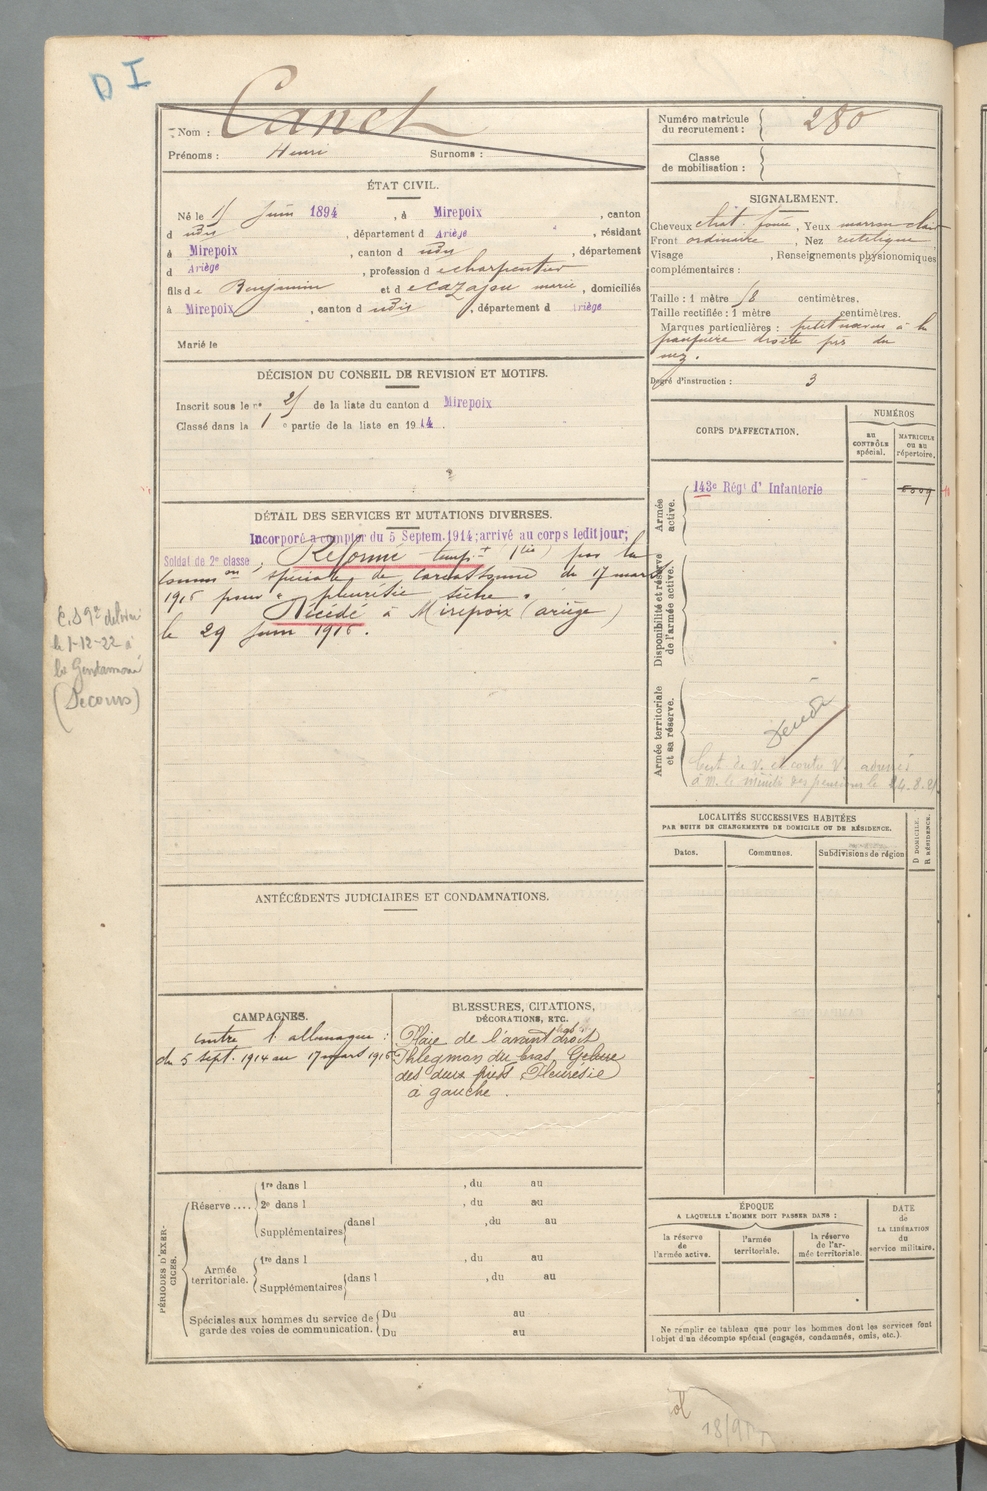 D I
Nom : Canet
Prénoms : Henri Surnoms :
Numéro matricule
du recrutement : 280
Classe
de mobilisation :
ÉTAT CIVIL.
Né le Juin 1894, à Mirepoix, canton
d udis, département d Ariège, résidant
à Mirepoix, canton d udis, département
d Ariège, profession de charpentier
fils de Benjamin et de Cazajou marie, domiciliés
à Mirepoix, canton d udis, département d Ariège
Marié le
SIGNALEMENT.
Cheveux chat. foncé, Yeux marron clair
Front ordinaire, Nez rectiligne
Visage , Renseignements physionomiques
complémentaires :
Taille : 1 mètre 58 centimètres.
Taille rectifiée : 1 mètre centimètres.
Marques particulières : petit à la
paupière droite près du
nez.
Degré d'instruction : 3
DÉCISION DU CONSEIL DE REVISION ET MOTIFS.
Inscrit sous le n° de la liste du canton d Mirepoix
Classé dans la 1e partie de la liste en 1914.
DÉTAIL DES SERVICES ET MUTATIONS DIVERSES.
Incorporé à compter du 5 Septem. 1914; arrivé au corps ledit jour;
Soldat de 2e classe. Réformé temp.t par la
Common spéciale de Carcassonne du 17 mars
1916 pour " pleurésie sèche".
Décédé à Mirepoix (ariège)
le 29 Juin 1916.
le 1-12-22 à
la Gendarmerie
(Secours)
CORPS D'AFFECTATION.
NUMÉROS
au
CONTRÔLE
spécial.
MATRICULE
ou au
répertoire.
Armée
active.
143e Régt d'Infanterie
Disponibilité et réserve
de l'armée active.
Armée territoriale
et sa réserve.
Cert. de V. et contre V. adressé
à M. le ministre des pensions le 24.8.21
LOCALITÉS SUCCESSIVES HABITÉES
PAR SUITE DE CHANGEMENTS DE DOMICILE OU DE RÉSIDENCE.
Dates.
Communes.
Subdivisions de région
D DOMICILE.
R RÉSIDENCE.
ANTÉCÉDENTS JUDICIAIRES ET CONDAMNATIONS.
CAMPAGNES.
contre l'allemagne :
du 5 sept. 1914 au 17 mars 1916
BLESSURES, CITATIONS,
DÉCORATIONS, ETC.
Plaie de l'avant bras droit
Phlegmon du bras. Gelure
des deux pieds Pleurésie
à gauche.
PÉRIODES D'EXERCICES.
Réserve ....
1re dans l , du au
2e dans l , du au
Supplémentaires dans l , du au
Armée
territoriale.
1re dans l , du au
Supplémentaires dans l , du au
Spéciales aux hommes du service de
garde des voies de communication.
Du au
Du au
ÉPOQUE
A LAQUELLE L'HOMME DOIT PASSER DANS :
la réserve
de
l'armée active.
l'armée
territoriale.
la réserve
de l'ar-
mée territoriale.
DATE
de
LA LIBÉRATION
du
service militaire.
Ne remplir ce tableau que pour les hommes dont les services font
l'objet d'un décompte spécial (engagés, condamnés, omis, etc.).